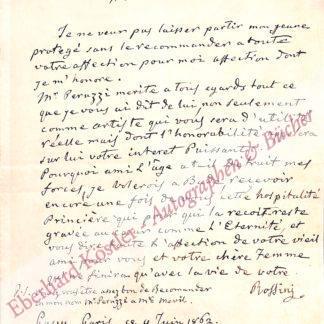 Je ne veux pas laisser partir mon jeune
protegé sans le recommander a toute
votre affection pour moi affection dont
je m'honore.
Mr Peruzzi merite a tous egards tout ce
que je vous ai dit de lui non seulement
comme artiste qui vous sera d'utilité
réelle mais dont l'honorabilité
sur lui votre interet Puissant
Pourquoi ami l'âge a t'il detruit mes
forces, je volerois a recevoir
encore une fois de cette hospitalité
Princière qui pour qui la recoit reste
gravée au comme l'Eternité, et
vous dire l'affection de votre vieil
ami vous et votre chère Femme
ne finiras qu'avec la vie de votre
Rossini
P.S. bon de Recomander
en mon nom Mr Peruzzi a
Passy Paris ce 4 Juin 1862
Eberhard Köstler Autographen & Bücher